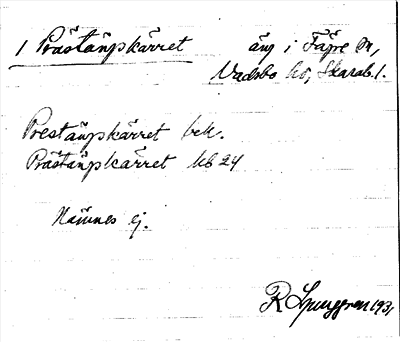 1 Prästängskärret äng i Fägre sn,
Vadsbo hd, Skarab. l.
Prestängskärret bek.
Prästängskärret UB 24
Nämnes ej.
R Ljunggren 1931